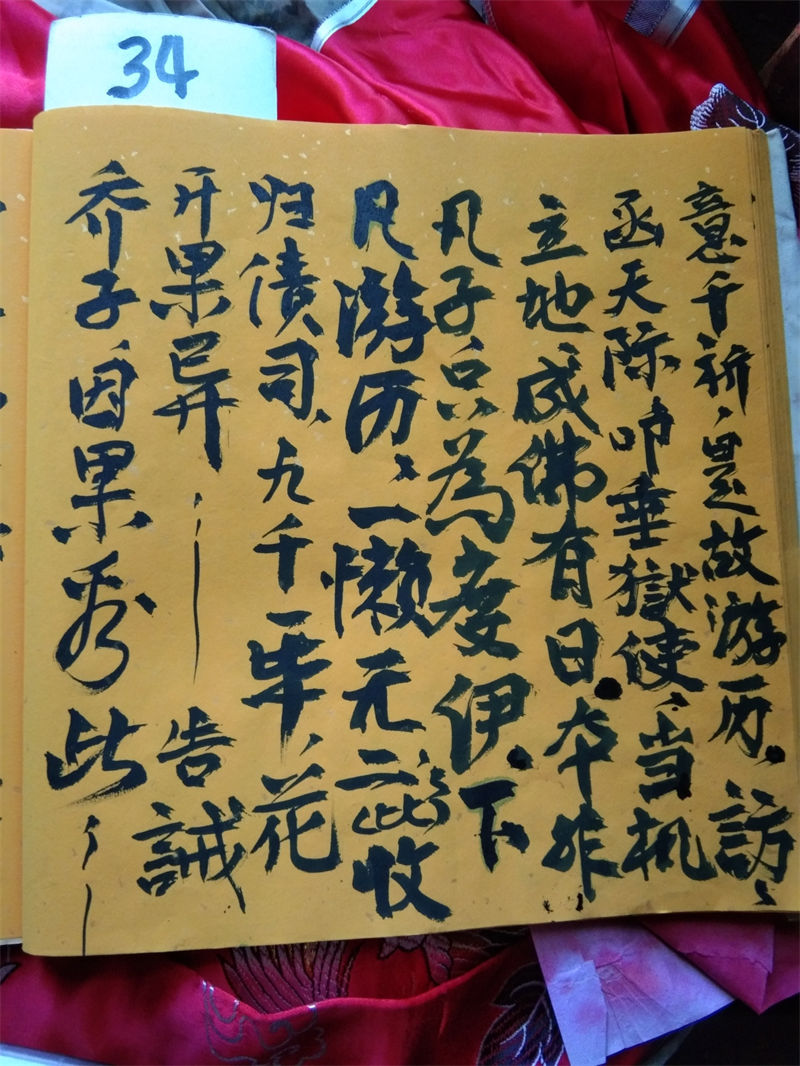 34
意千祈、是故游历。訪、
函天际叩垂獄使、当机
立地、成佛有日。本非
凡子、只為度伊。下
凡游历、一懒元二此收
归债司、九千一年、花
开果异——告誡
乔子、因果秀此——